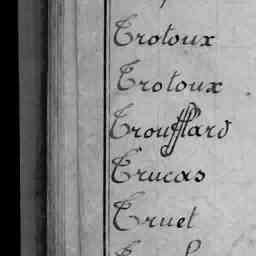 Trotoux
Trotoux
Troufflard
Trucas
Truet